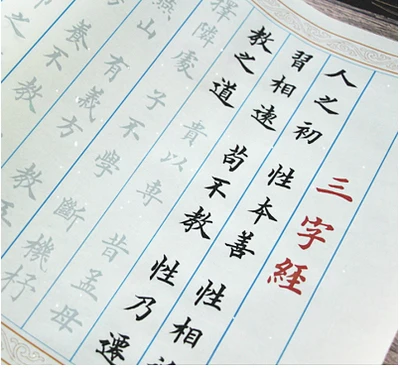 三字經
人之初 性本善 性相
習相遠 苟不教 性乃遷
教之道 貴以專 昔孟母
擇鄰處 子不學 斷機杼
燕山 有義方 教五
養不教
之